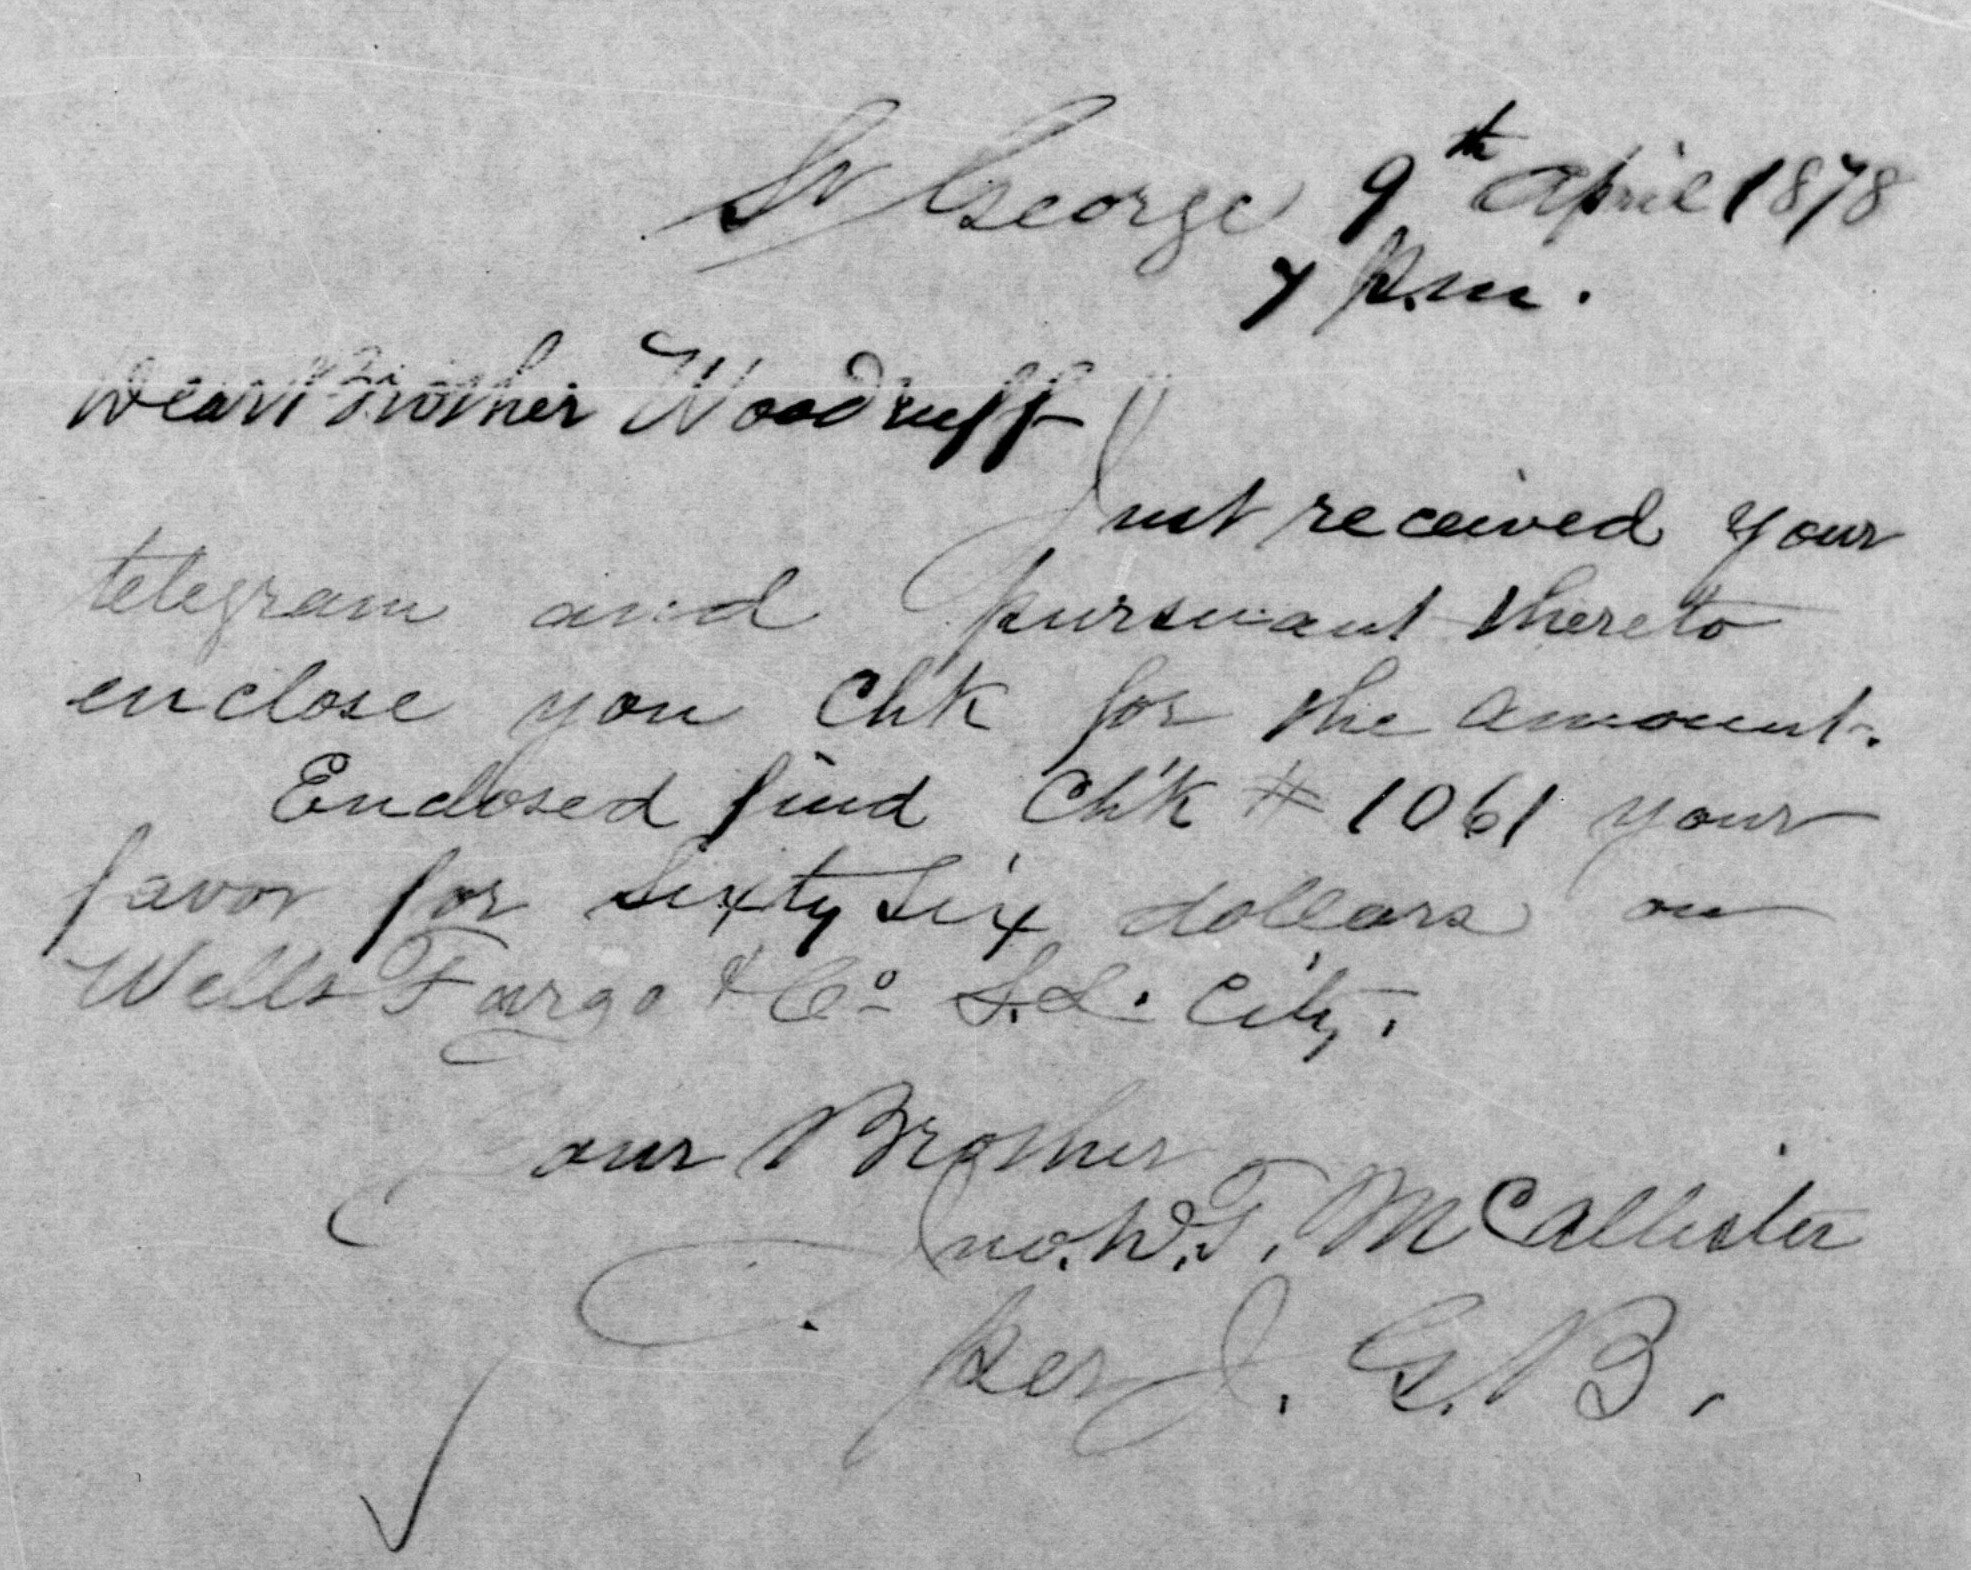 St George 9th April 1878
7 p.m.
Dear Brother Woodruff
Just received your
telegram and pursuant thereto
enclose you Chk for the amount.
Enclosed find Ch'k # 1061 your
favor for Sixty Six dollars on
Wells Fargo & Co S.L. City.
Your Brother
Jno. W. T. McAllister
per J. G. B.